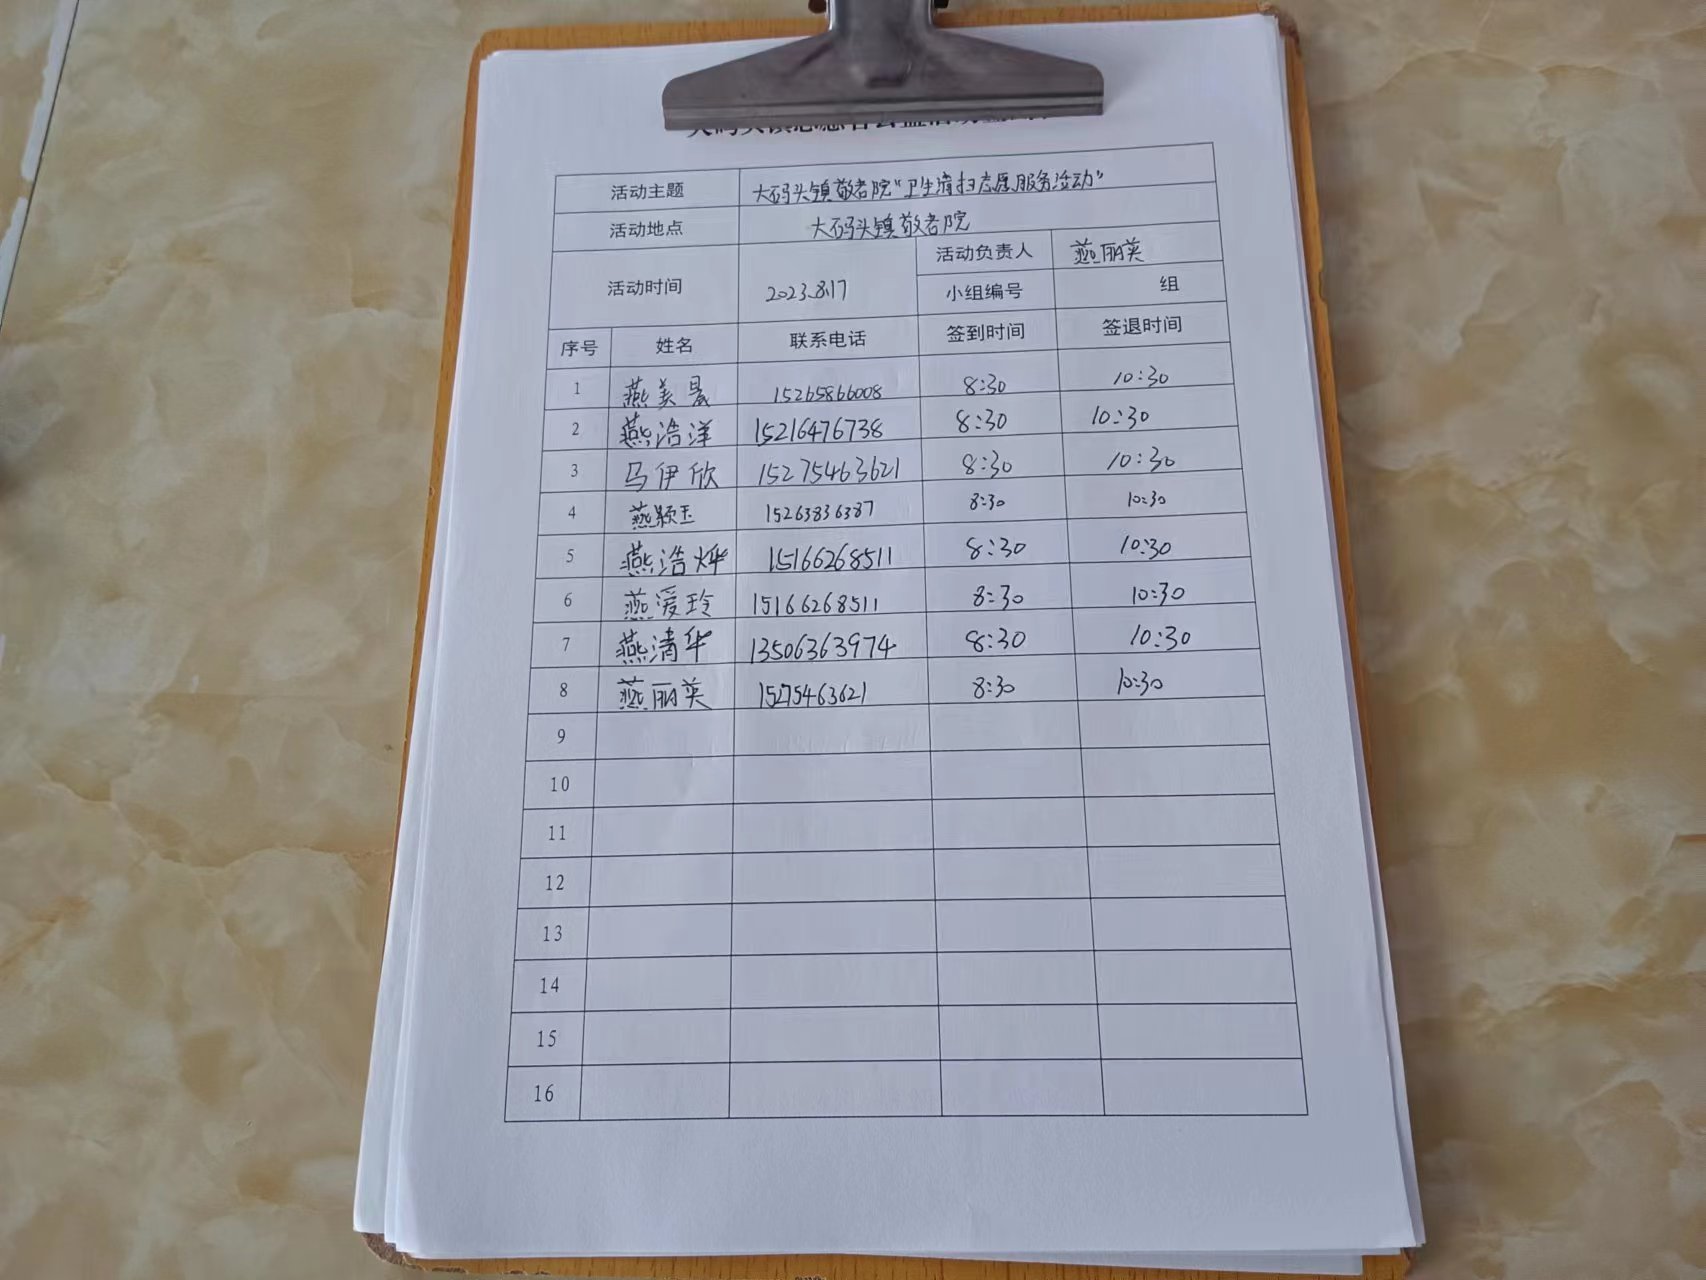 活动主题 大码头镇敬老院“卫生清扫志愿服务活动”
活动地点 大码头镇敬老院
活动时间 2023.8.17 活动负责人 燕丽英
小组编号 组
序号 姓名 联系电话 签到时间 签退时间
1 燕美 15265866008 8:30 10:30
2 燕浩洋 15216476738 8:30 10:30
3 马伊欣 15275463621 8:30 10:30
4 燕颖玉 15263836387 8:30 10:30
5 燕浩烨 15166268511 8:30 10:30
6 燕爱玲 15166268511 8:30 10:30
7 燕清华 13506363974 8:30 10:30
8 燕丽英 15275463621 8:30 10:30
9
10
11
12
13
14
15
16